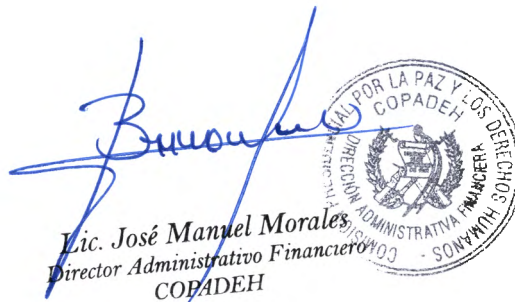 Lic. José Manuel Morales
Director Administrativo Financiero
COPADEH
COMISIÓN PRESIDENCIAL POR LA PAZ Y LOS DERECHOS HUMANOS
COPADEH
DIRECCIÓN ADMINISTRATIVA FINANCIERA